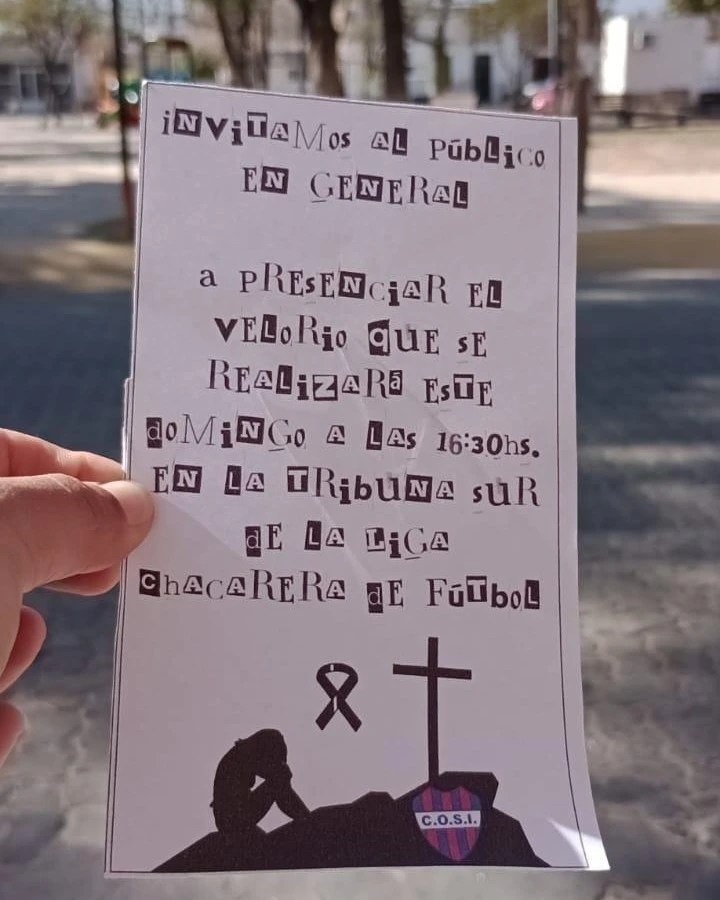 iNViTAMos AL PúbLico
EN GENERAL
a PREsENciAR EL
VELoRio QUE sE
REALiZARá EsTE
doMiNGo A LAs 16:30hs.
EN LA TRibuNA suR
dE LA LiGA
ChACARERA dE FúTboL
C.O.S.I.